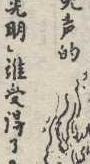 声的
光明」誰受得了。